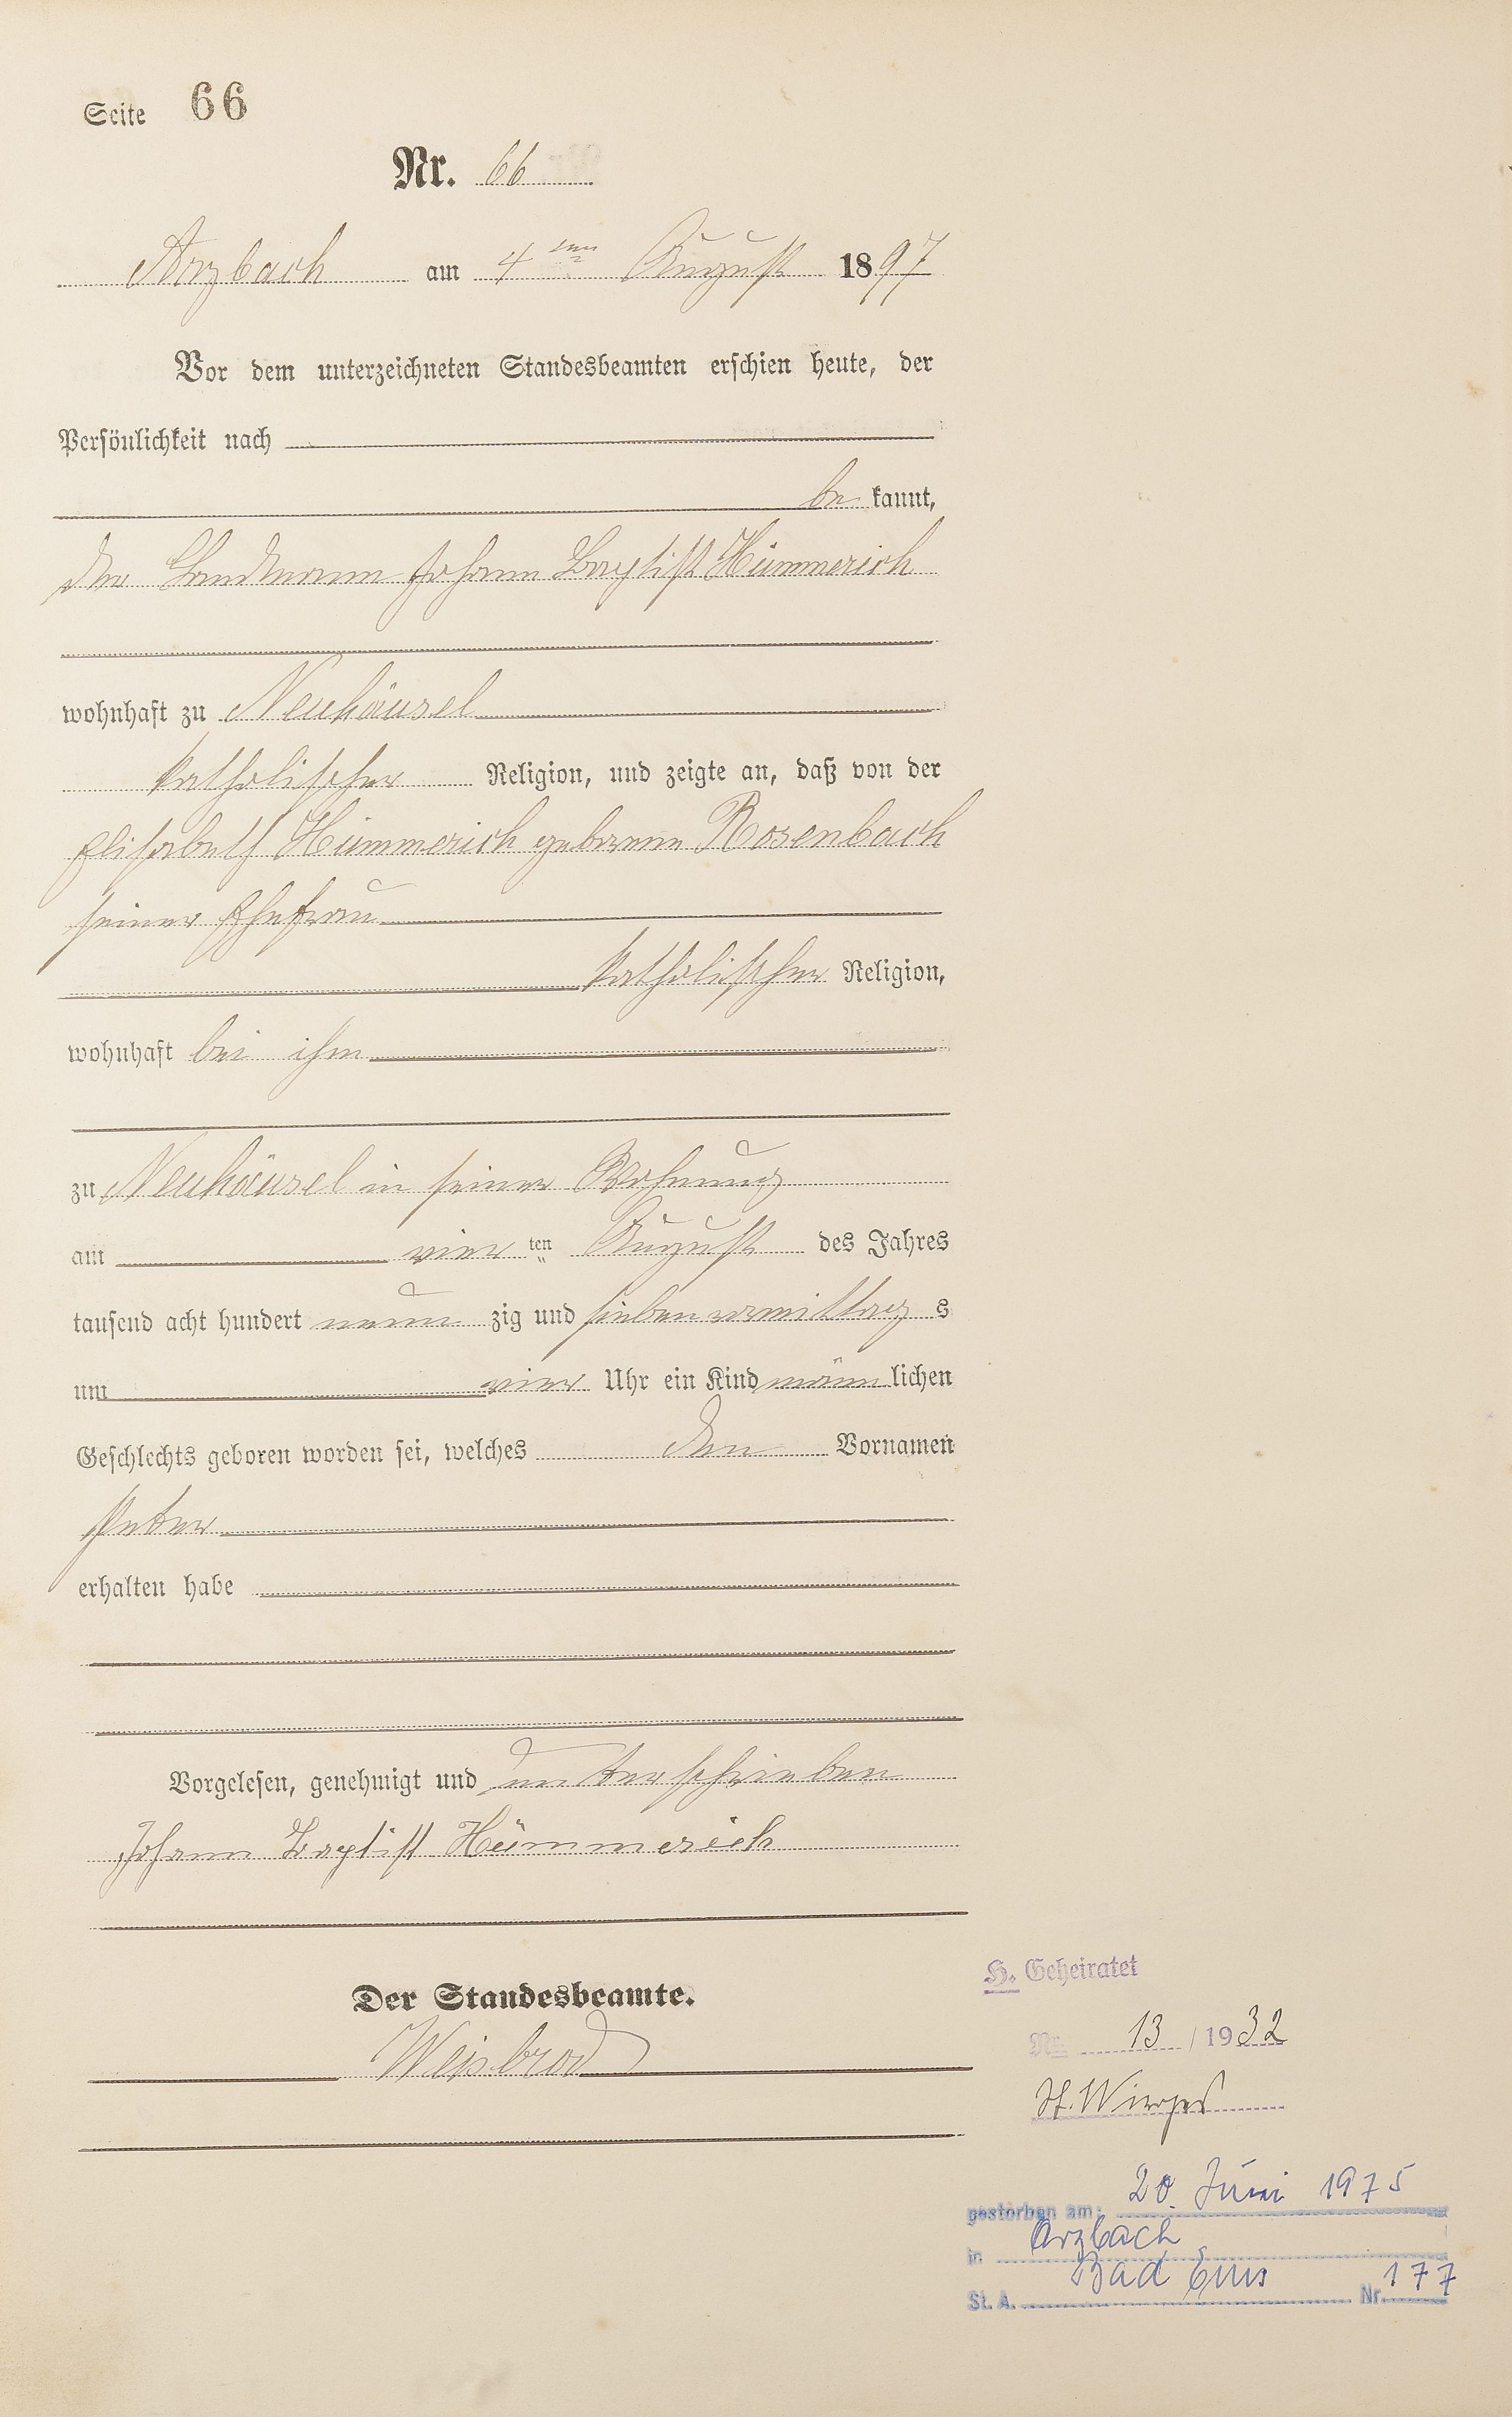 Seite 66
Nr. 66
Arzbach am 4ten August 1897
Vor dem unterzeichneten Standesbeamten erschien heute, der
Persönlichkeit nach
be kannt,
der Landmann Johann Baptist Hümmerich
wohnhaft zu Neuhäusel
katholischer Religion, und zeigte an, daß von der
Elisabeth Hümmerich geborene Rosenbach
seiner Ehefrau
katholischer Religion,
wohnhaft bei ihm
zu Neuhäusel in seiner Wohnung
am vier ten August des Jahres
tausend acht hundert neun zig und sieben vormittag s
um vier Uhr ein Kind männ lichen
Geschlechts geboren worden sei, welches den Vornamen
Peter
erhalten habe
Vorgelesen, genehmigt und unterschrieben
Johann Baptist Hümmerich
Der Standesbeamte.
Weisbrod
H. Geheiratet
Nr. 13 / 1932
gestorben am: 20. Juni 1975
in Arzbach
St. A. Bad Ems Nr. 177